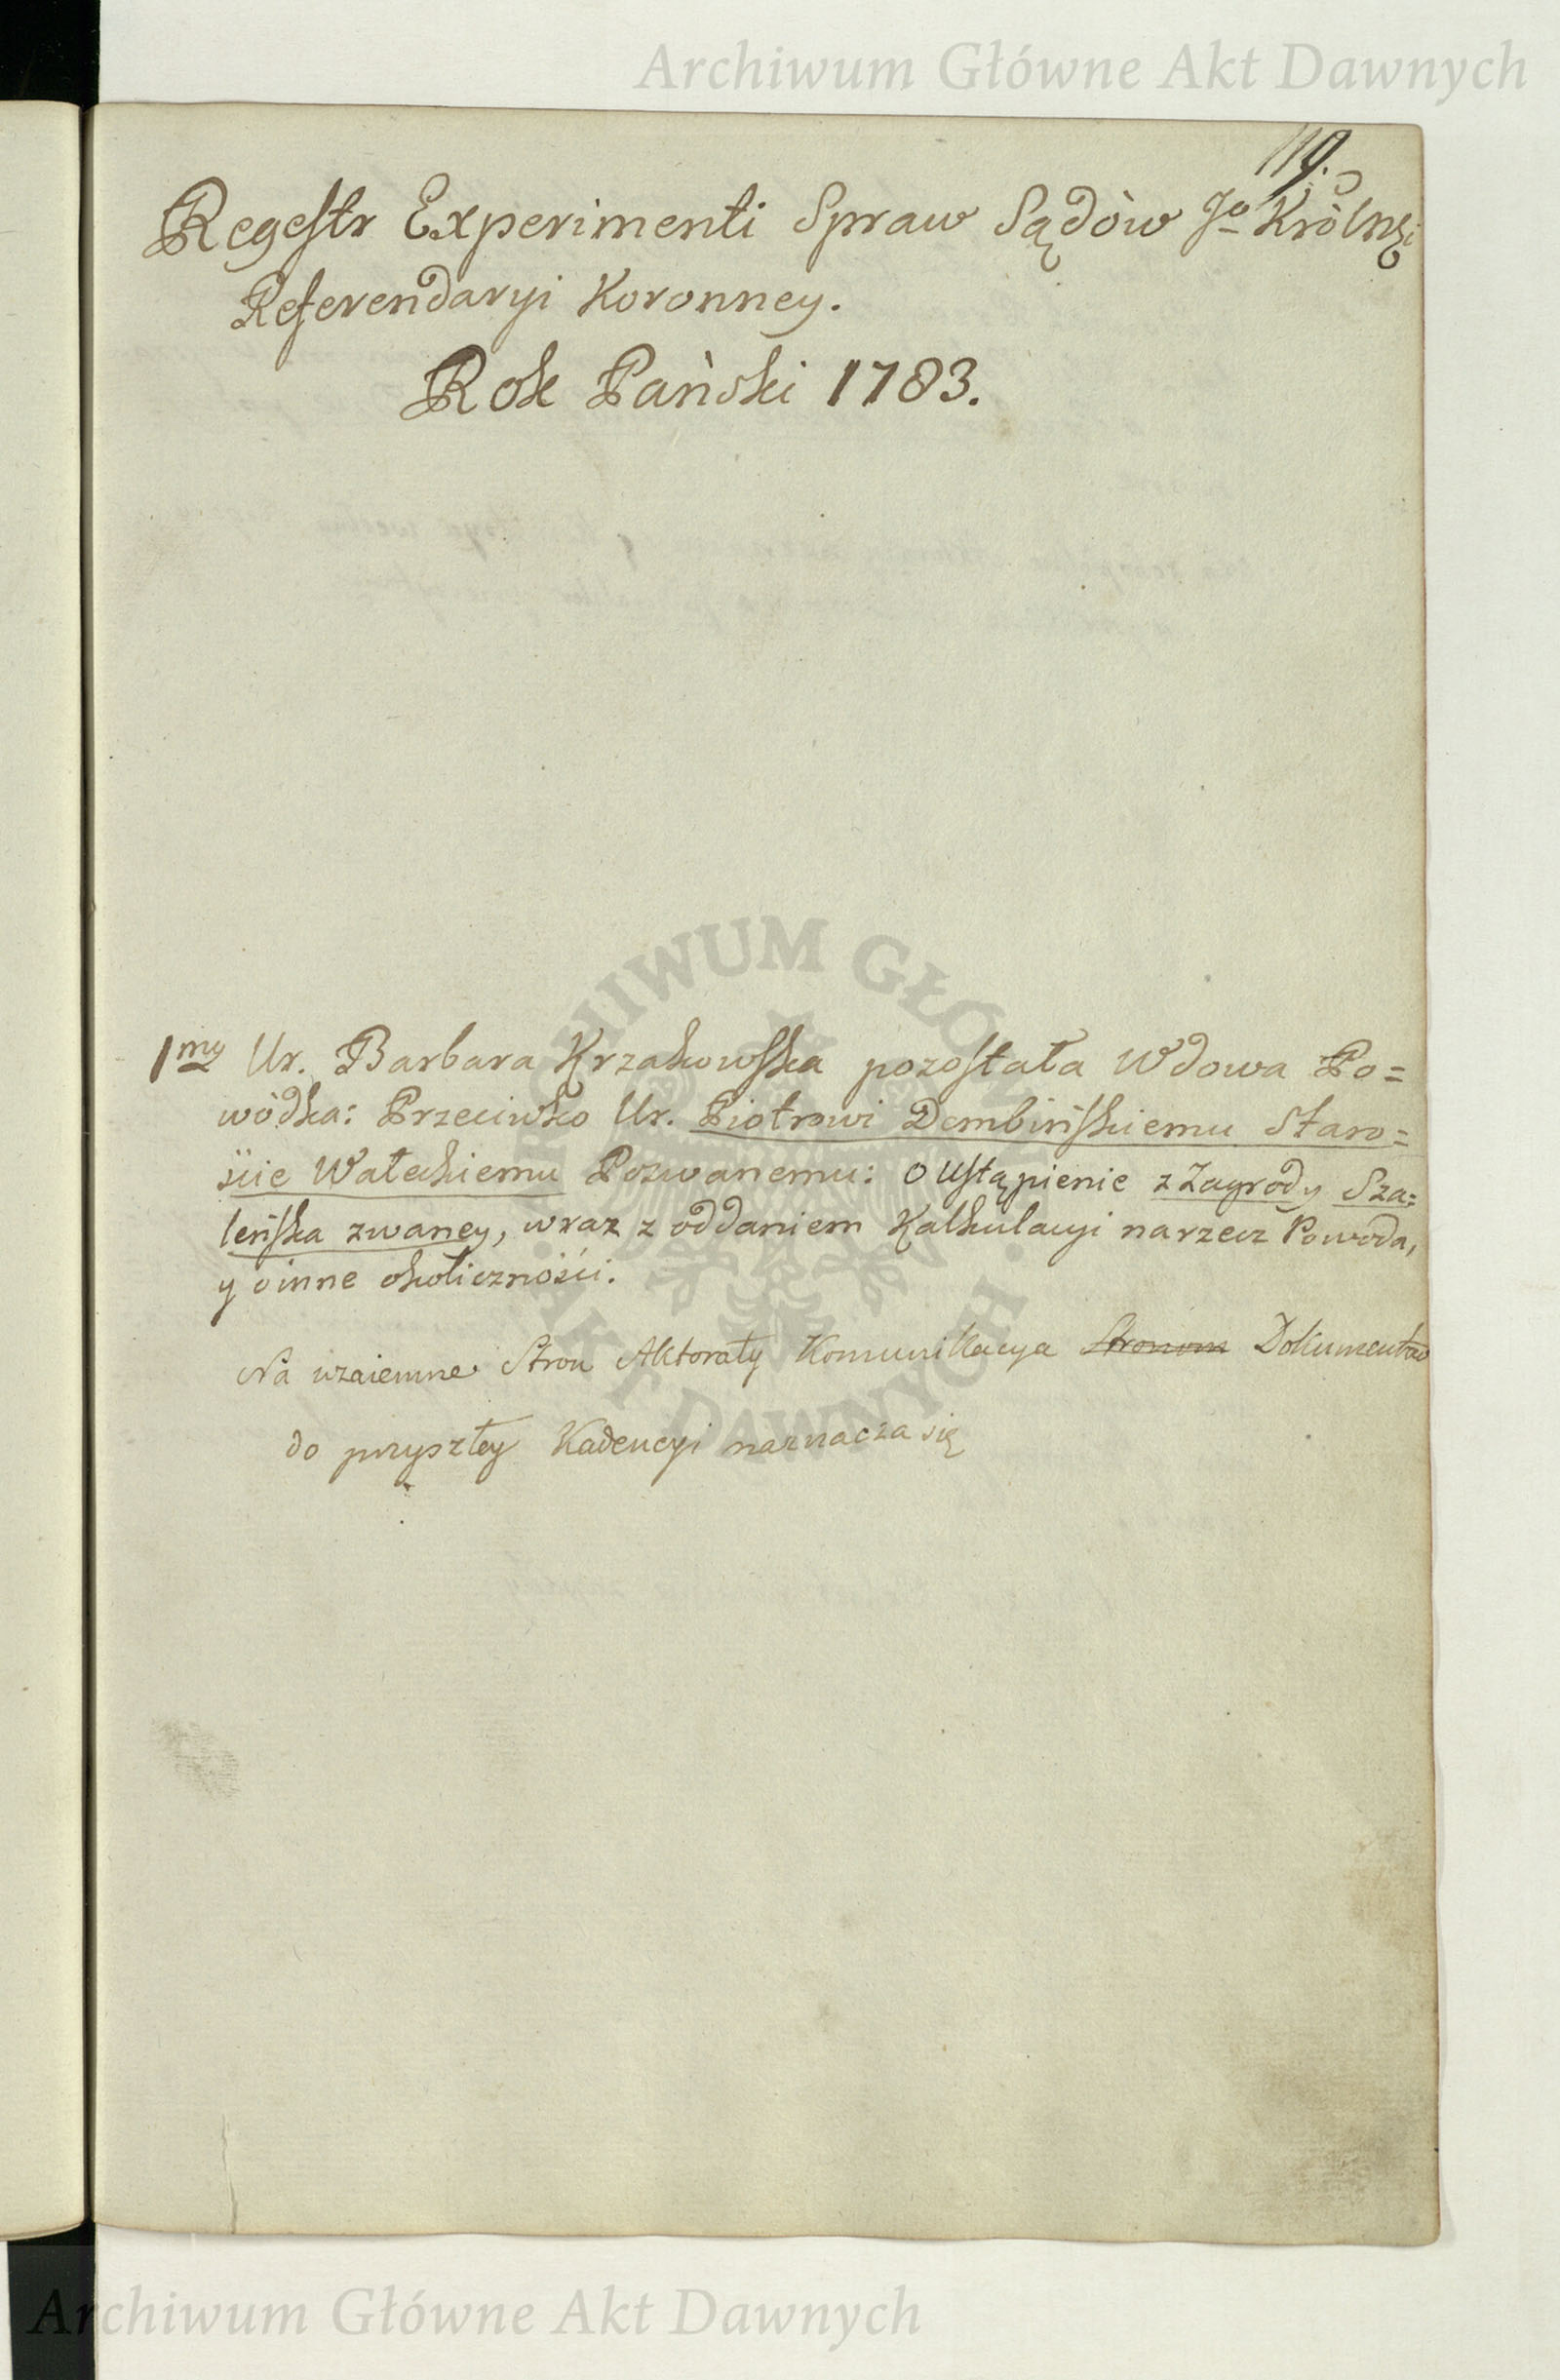 Archiwum Główne Akt Dawnych
119.
Regestr Experimenti Spraw Sądòw Jo Królmści
Referendaryi Koronney.
Rok Pański 1783.
1my Ur. Barbara Krzakowska pozostała Wdowa Po=
wódka: Przeciwko Ur. Piotrowi Dembińskiemu Staro=
ście Wałeckiemu Pozwanemu: o Ustąpienie z Zagrody Sza=
leńska zwaney, wraz z oddaniem Kalkulacyi narzecz Powoda,
y o inne okoliczności.
Na wzaiemne Stron Aktoraty Komunikacya Stronom Dokumentow
do przyszłey Kadencyi naznacza się
ARCHIWUM GŁÓWNE
AKT DAWNYCH
Archiwum Główne Akt Dawnych